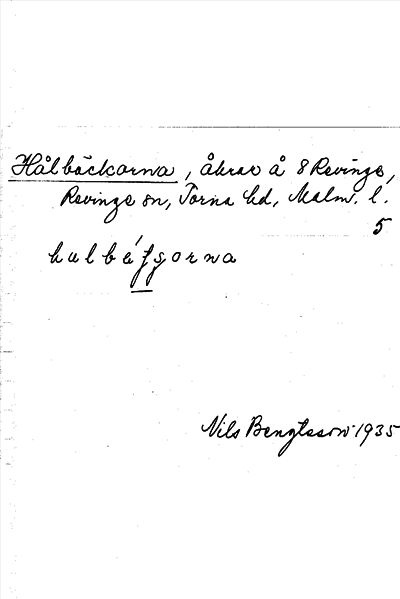 Hålbäckorna, åkrar å 8 Revinge,
Revinge sn, Torna hd, Malm. l.
5
Nils Bengtsson 1935